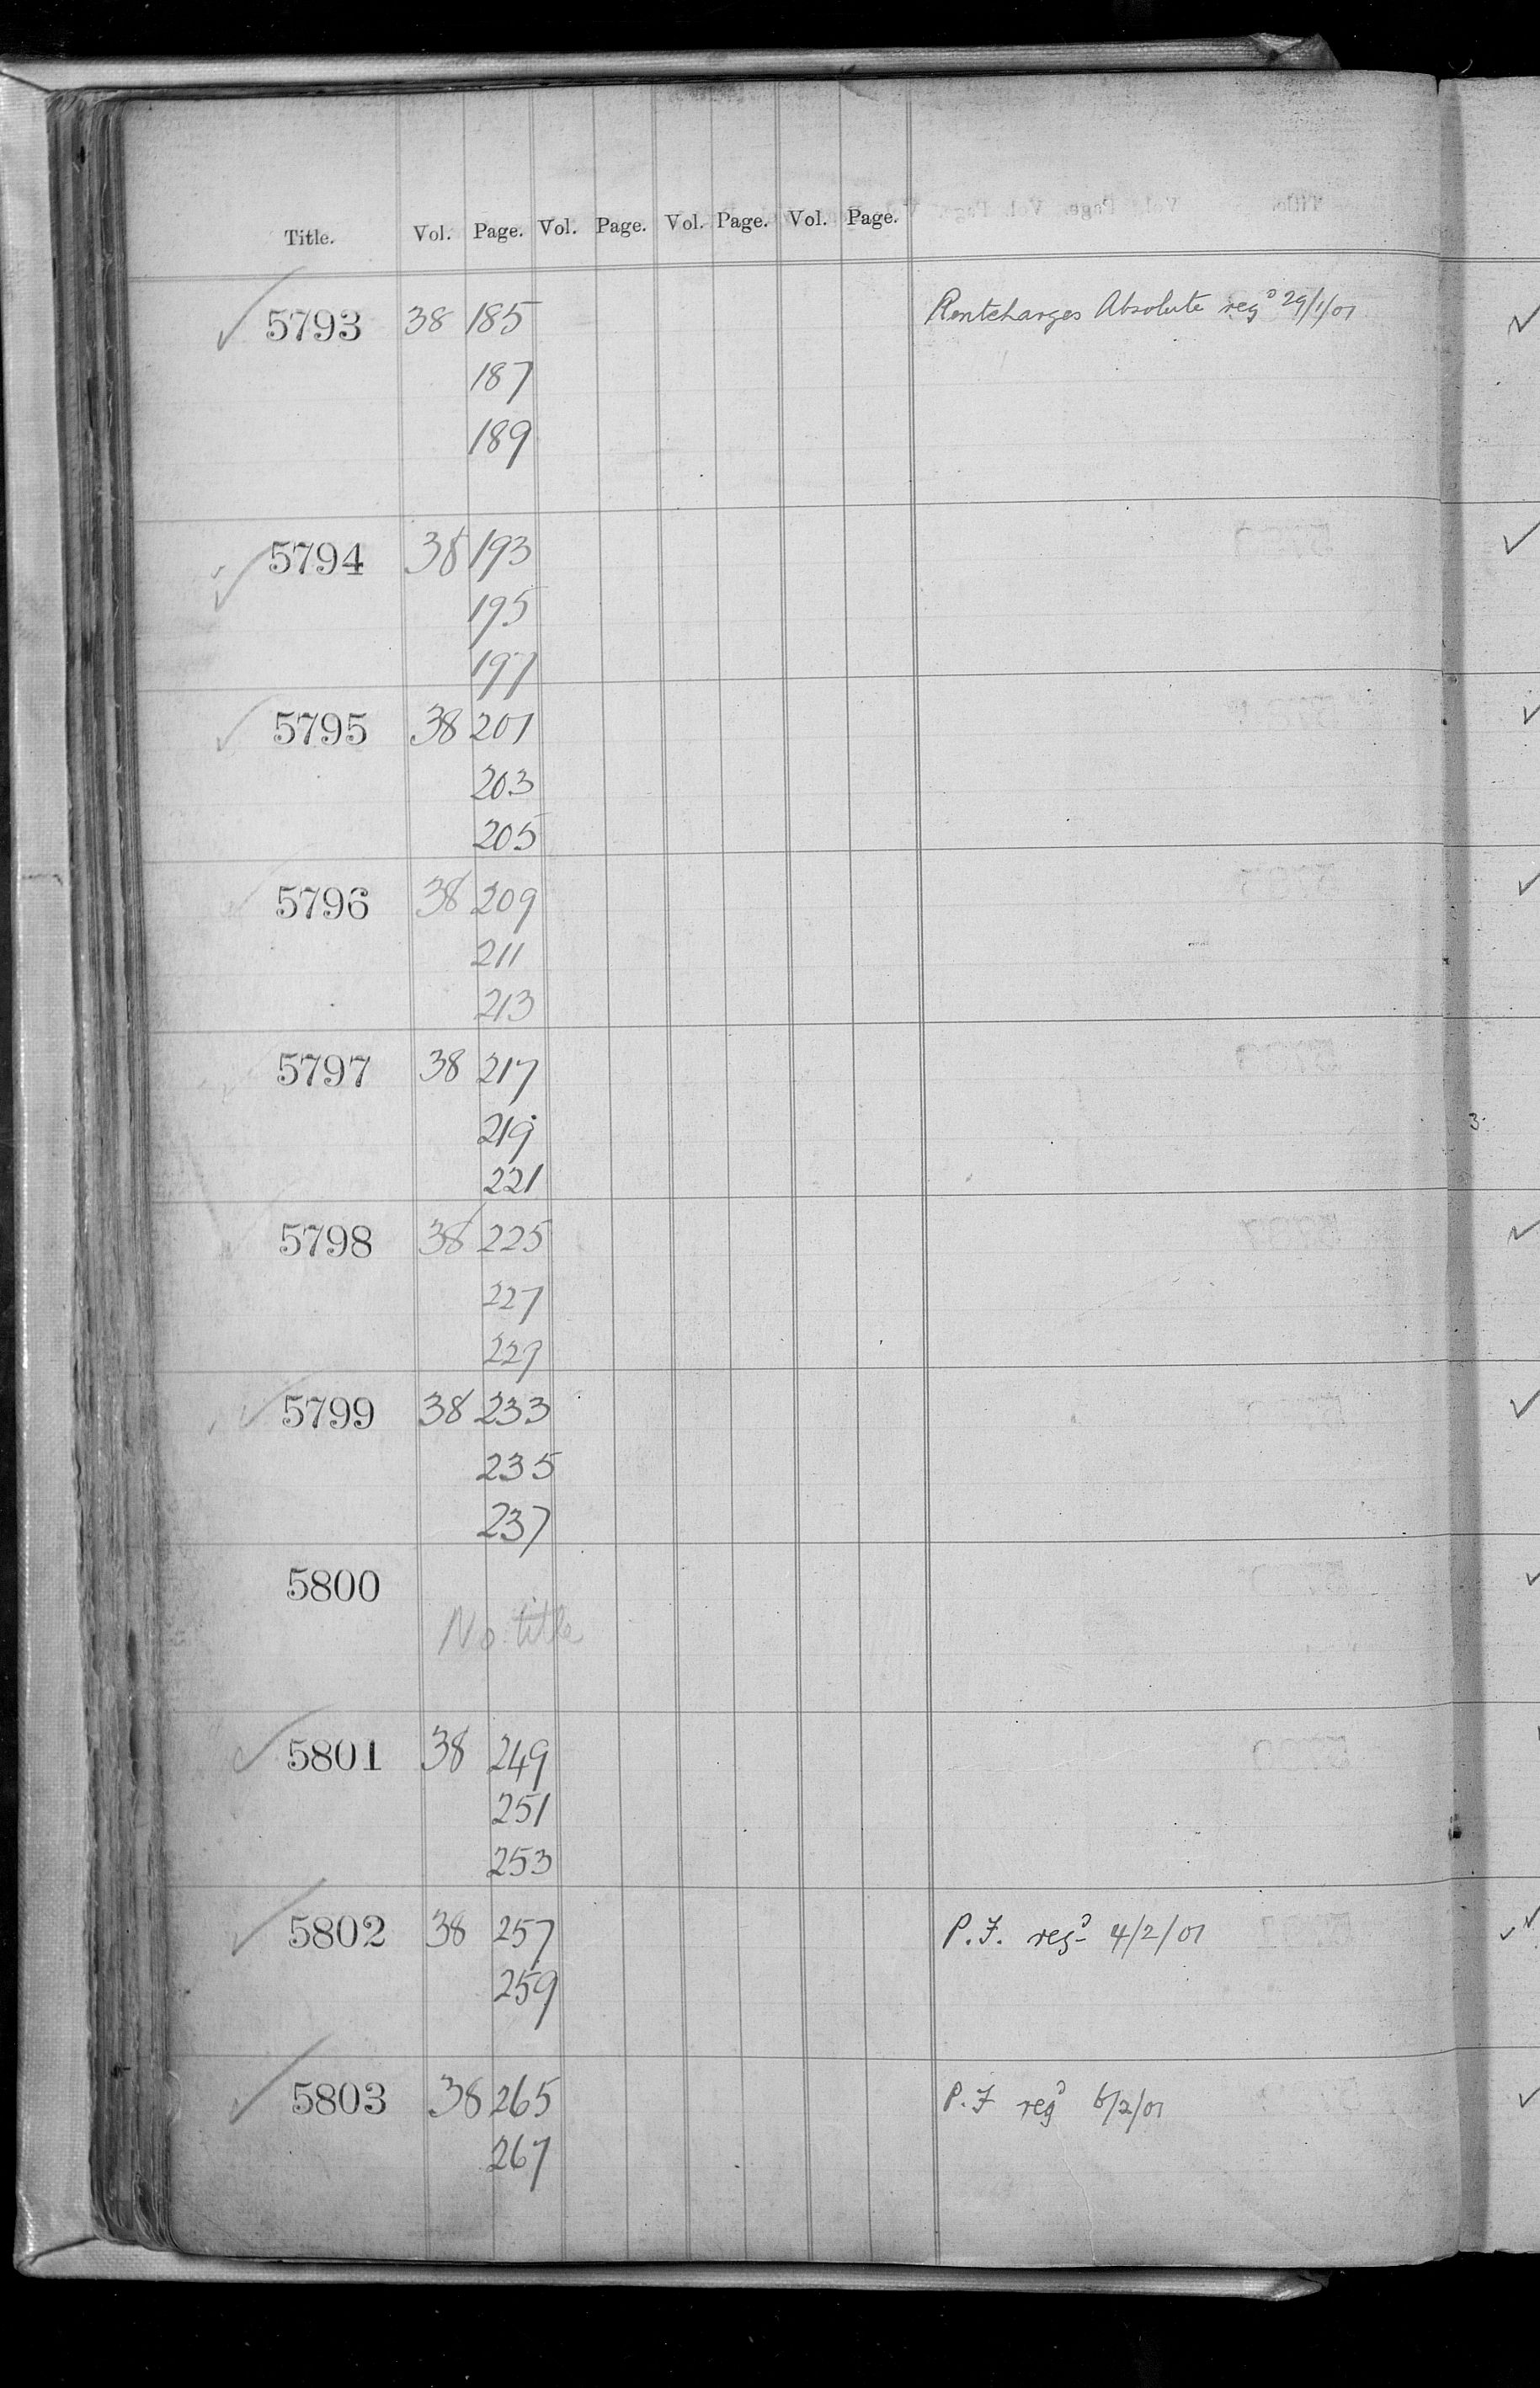 Title. Vol. Page. Vol. Page. Vol. Page. Vol. Page.
5793 38 185 Rentcharges Absolute regd 29/1/01
187
189
5794 38 193
195
197
5795 38 201
203
205
5796 38 209
211
213
5797 38 217
219
221
5798 38 225
227
229
5799 38 233
235
237
5800
No title
5801 38 249
251
253
5802 38 257 P.F. regd 4/2/01
259
5803 38 265 P.F regd 6/2/01
267
3